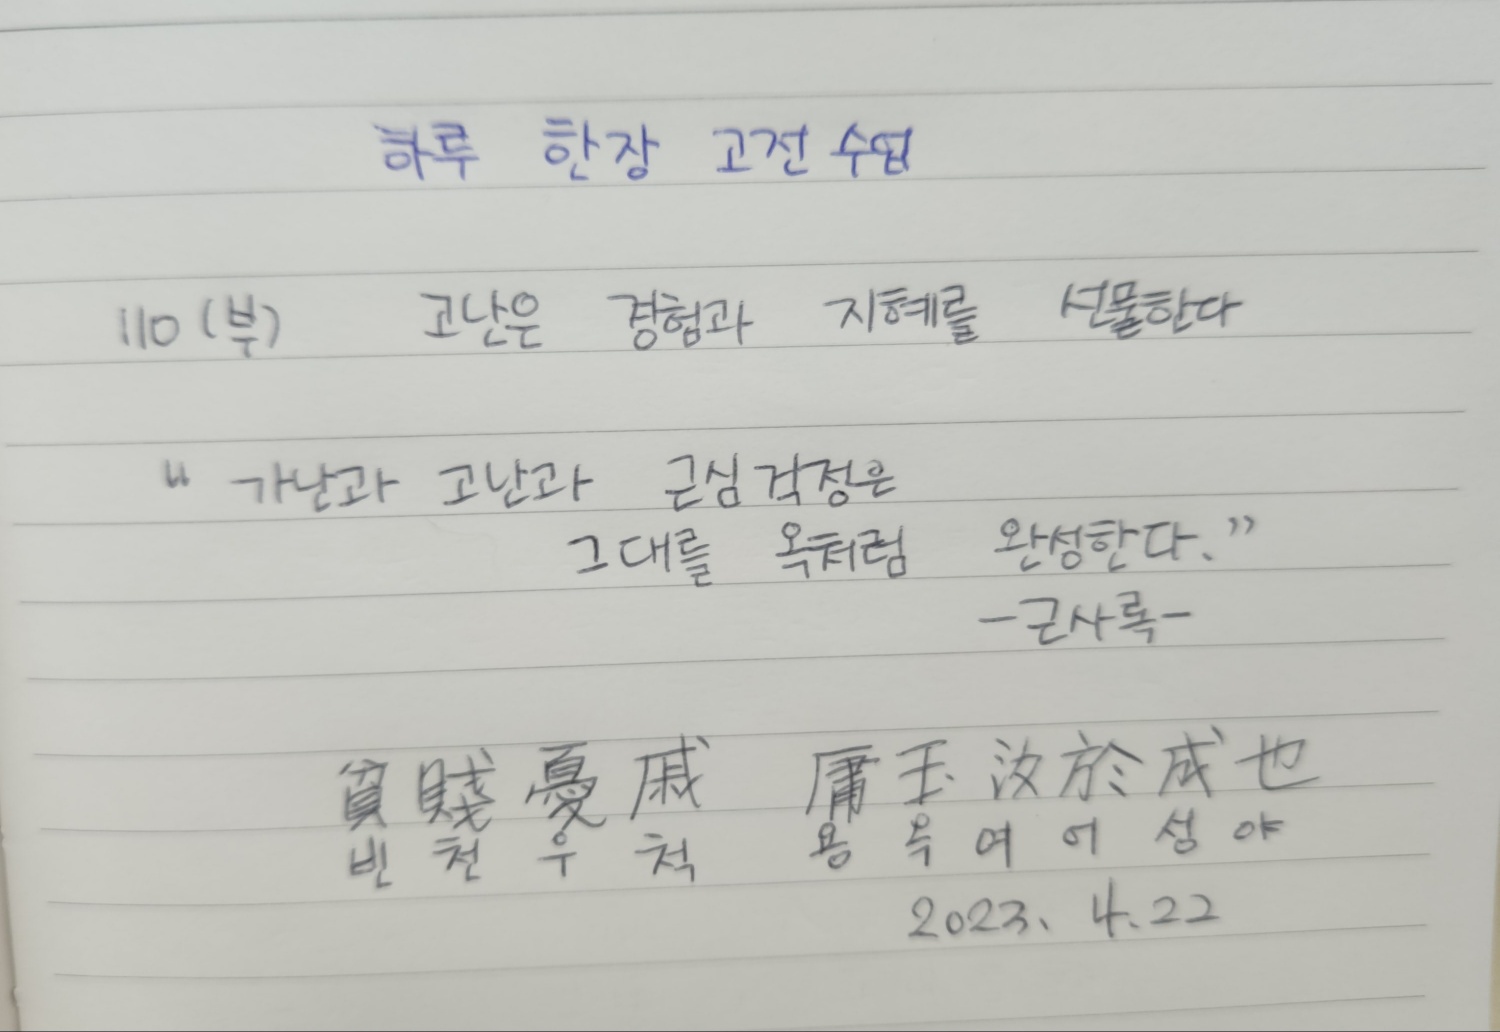 하루 한장 고전 수업
110(부) 고난은 경험과 지혜를 선물한다
“가난과 고난과 근심걱정은
그대를 옥처럼 완성한다.”
-근사록-
貧賤憂戚 庸玉汝於成也
빈천우척 용옥여어성야
2023. 4.22